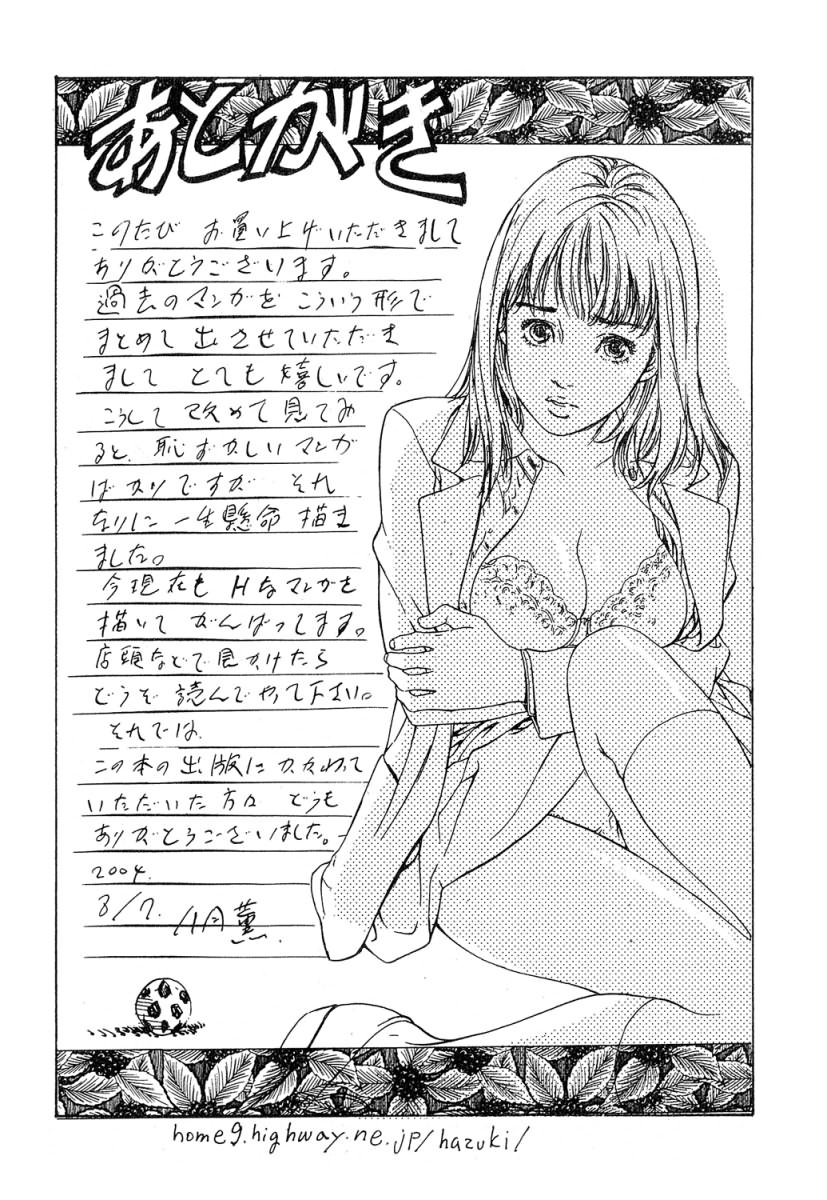 あとがき
このたび お買い上げいただきまして
ありがとうございます。
過去のマンガを こういう形で
まとめて出させていただき
まして とても 嬉しいです。
こうして 改めて 見てみ
ると、恥ずかしいマンガ
ばかりですが それ
なりに 一生懸命 描き
ました。
今現在も Hなマンガを
描いて がんばってます。
店頭などで見かけたら
どうぞ 読んでやって下さい。
それでは、
この本の出版に かかわって
いただいた方々 どうも
ありがとうございました。
2004.
8/7. 八月薫
home9.highway.ne.jp/hazuki/